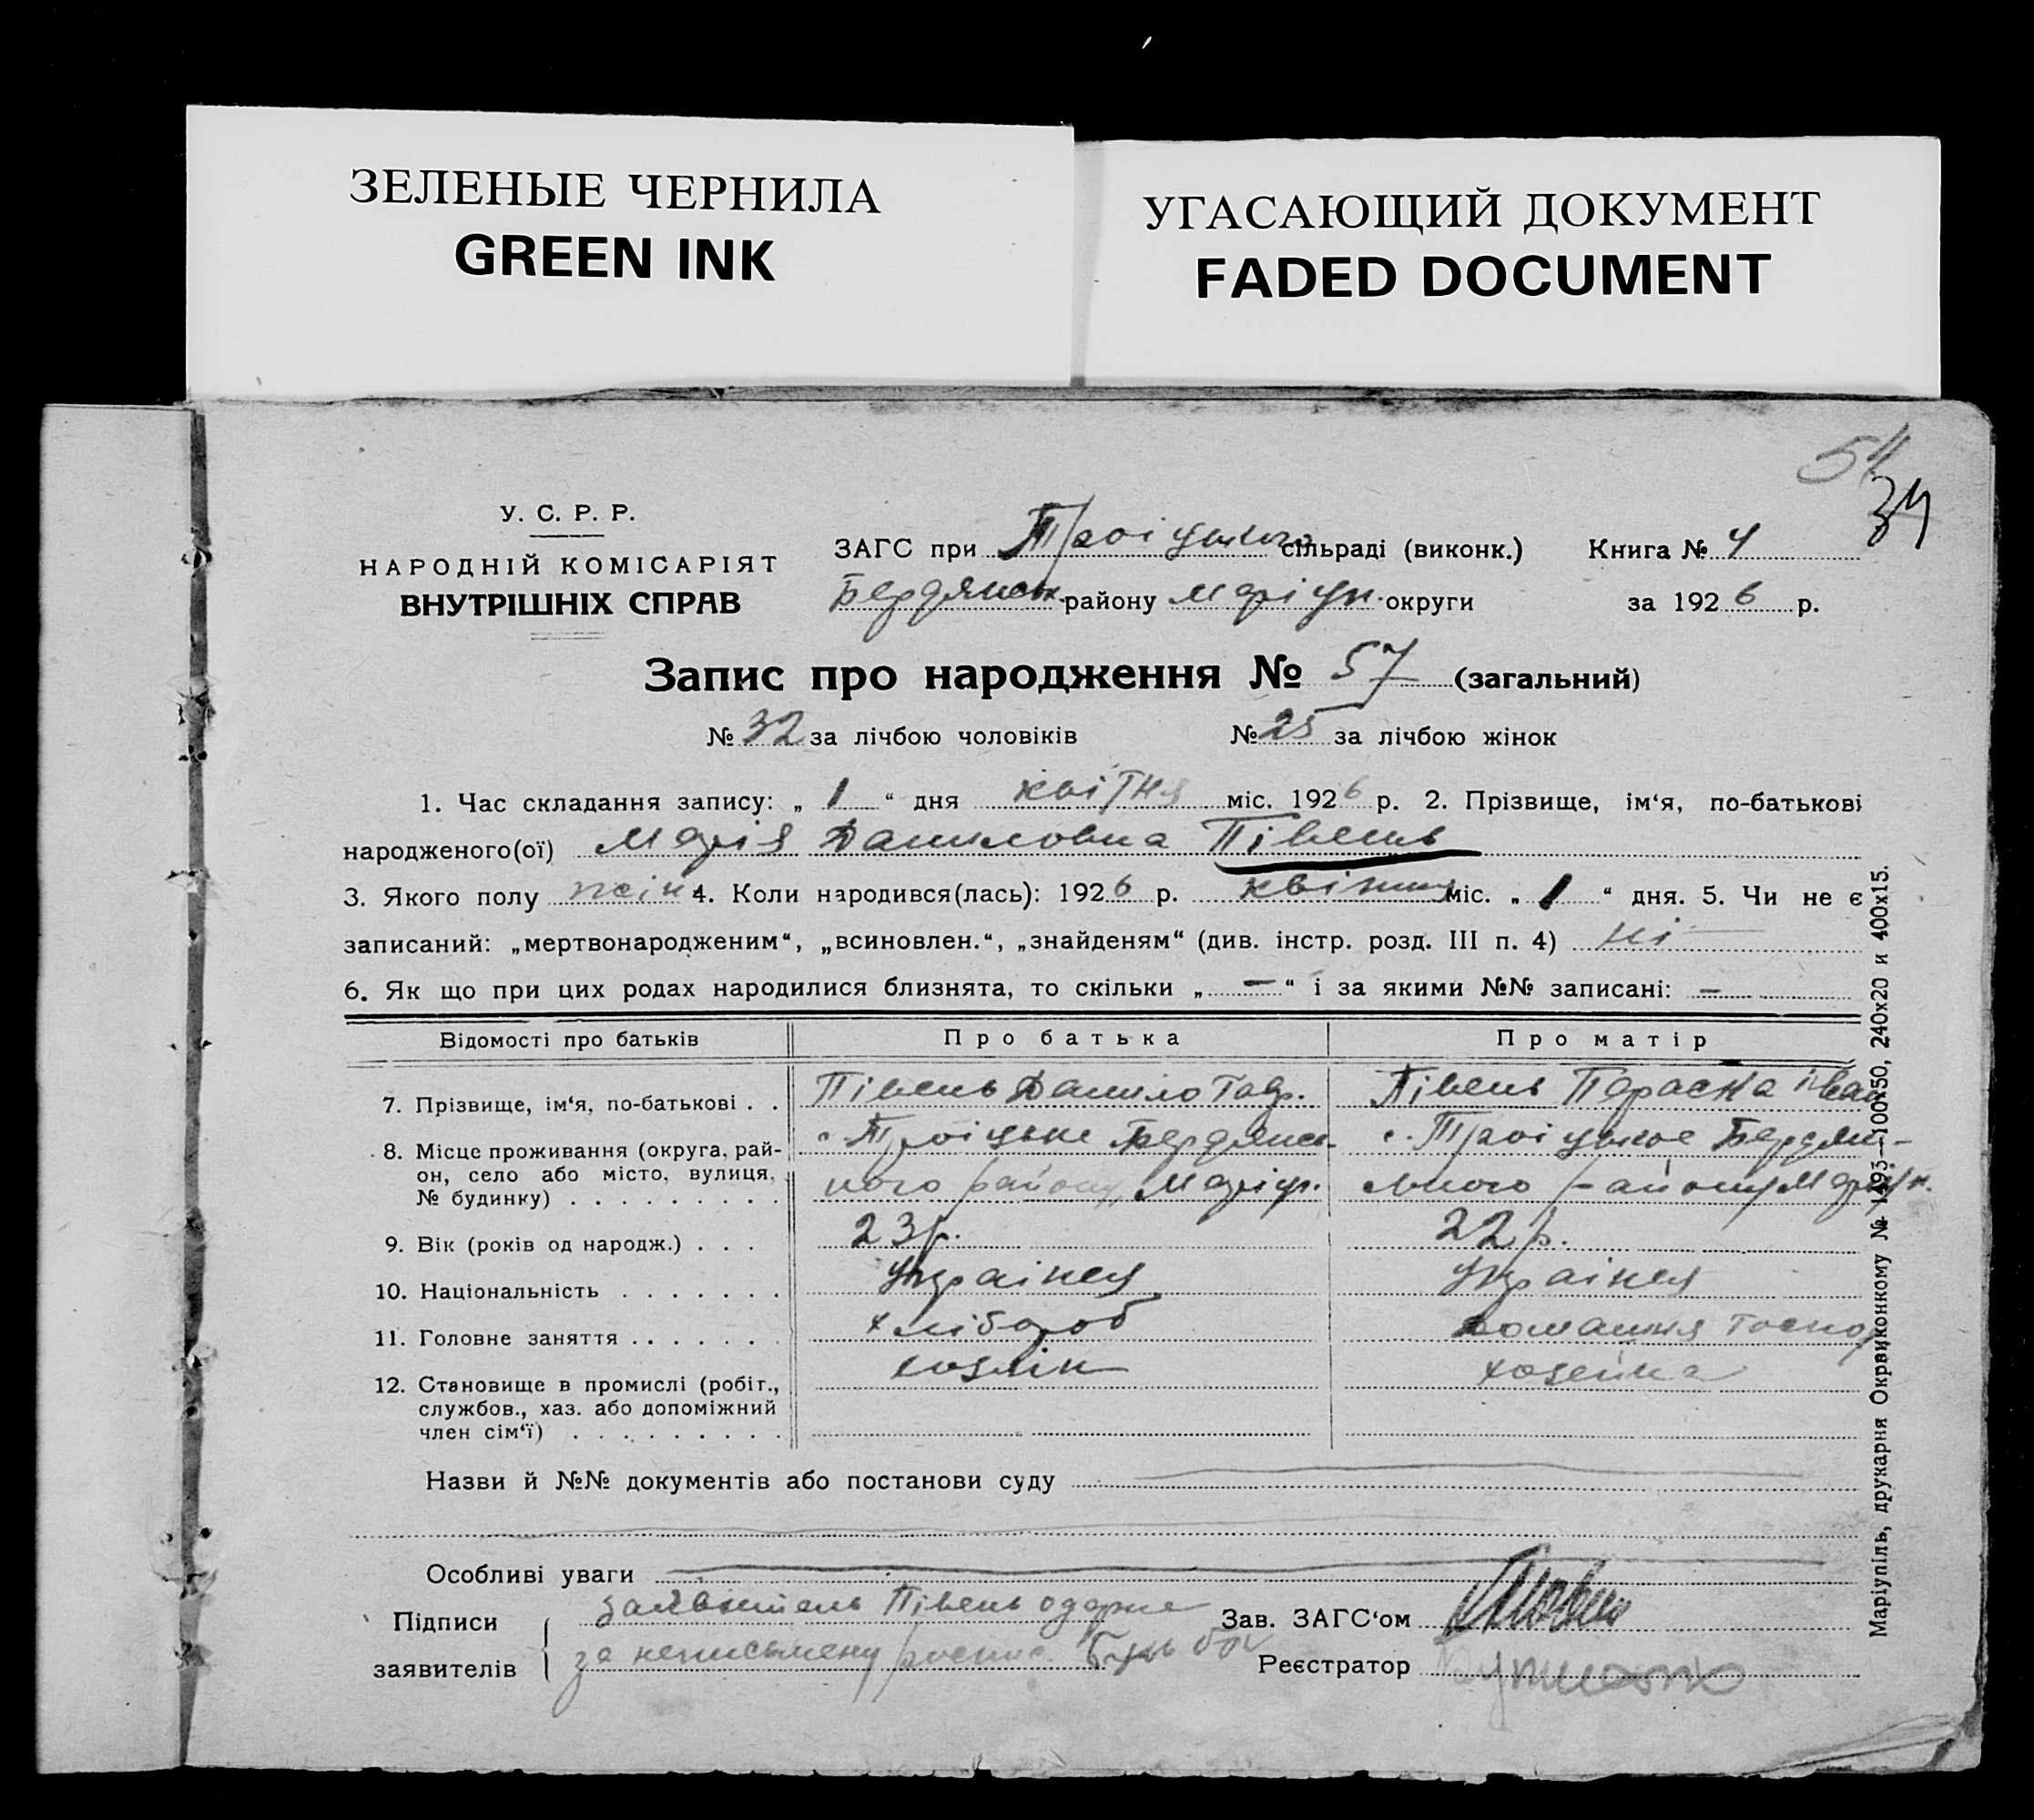 ЗЕЛЕНЫЕ ЧЕРНИЛА
GREEN INK
УГАСАЮЩИЙ ДОКУМЕНТ
FADED DOCUMENT
54
34
У. С. Р. Р.
НАРОДНІЙ КОМІСАРІЯТ
ВНУТРІШНІХ СПРАВ
ЗАГС при Троіцького сільраді (виконк.) Книга № 4
Бердянськ. району Маріуп. округи за 1926 р.
Запис про народження № 57 (загальний)
№ 32 за лічбою чоловіків № 25 за лічбою жінок
1. Час складання запису: „ 1 “ дня квітня міс. 1926 р. 2. Прізвище, ім‘я, по-батькові
народженого(ої) Марія Даниловна Півень
3. Якого полу жін. 4. Коли народився(лась): 1926 р. квітня міс. „ 1 “ дня. 5. Чи не є
записаний: „мертвонародженим“, „всиновлен.“, „знайденям“ (див. інстр. розд. III п. 4) ні
6. Як що при цих родах народилися близнята, то скільки „ — “ і за якими №№ записані: —
Відомості про батьків Про батька Про матір
7. Прізвище, ім‘я, по-батькові . . Півень Данило Гавр. Півень Параска Іван
8. Місце проживання (округа, рай- с. Троіцьке Бердянсь- с. Троіцькое Бердян-
он, село або місто, вулиця, кого району, Маріуп. ського району Маріуп.
№ будинку) . . . . . . . . .
9. Вік (років од народж.) . . . 23 р. 22 р.
10. Національність . . . . . . . Украінец Украінец
11. Головне заняття . . . . . . . хлібороб домашня господ
12. Становище в промислі (робіт., хозяін хозейка
службов., хаз. або допоміжний
член сім‘ї) . . . . . . . . .
Назви й №№ документів або постанови суду
Особливі уваги
Підписи заявитель Півень Зав. ЗАГС‘ом
заявителів за неписьмену роспис. Реєстратор
Маріупіль, друкарня Окрвиконкому № 1493—100х50, 240х20 и 400х15.